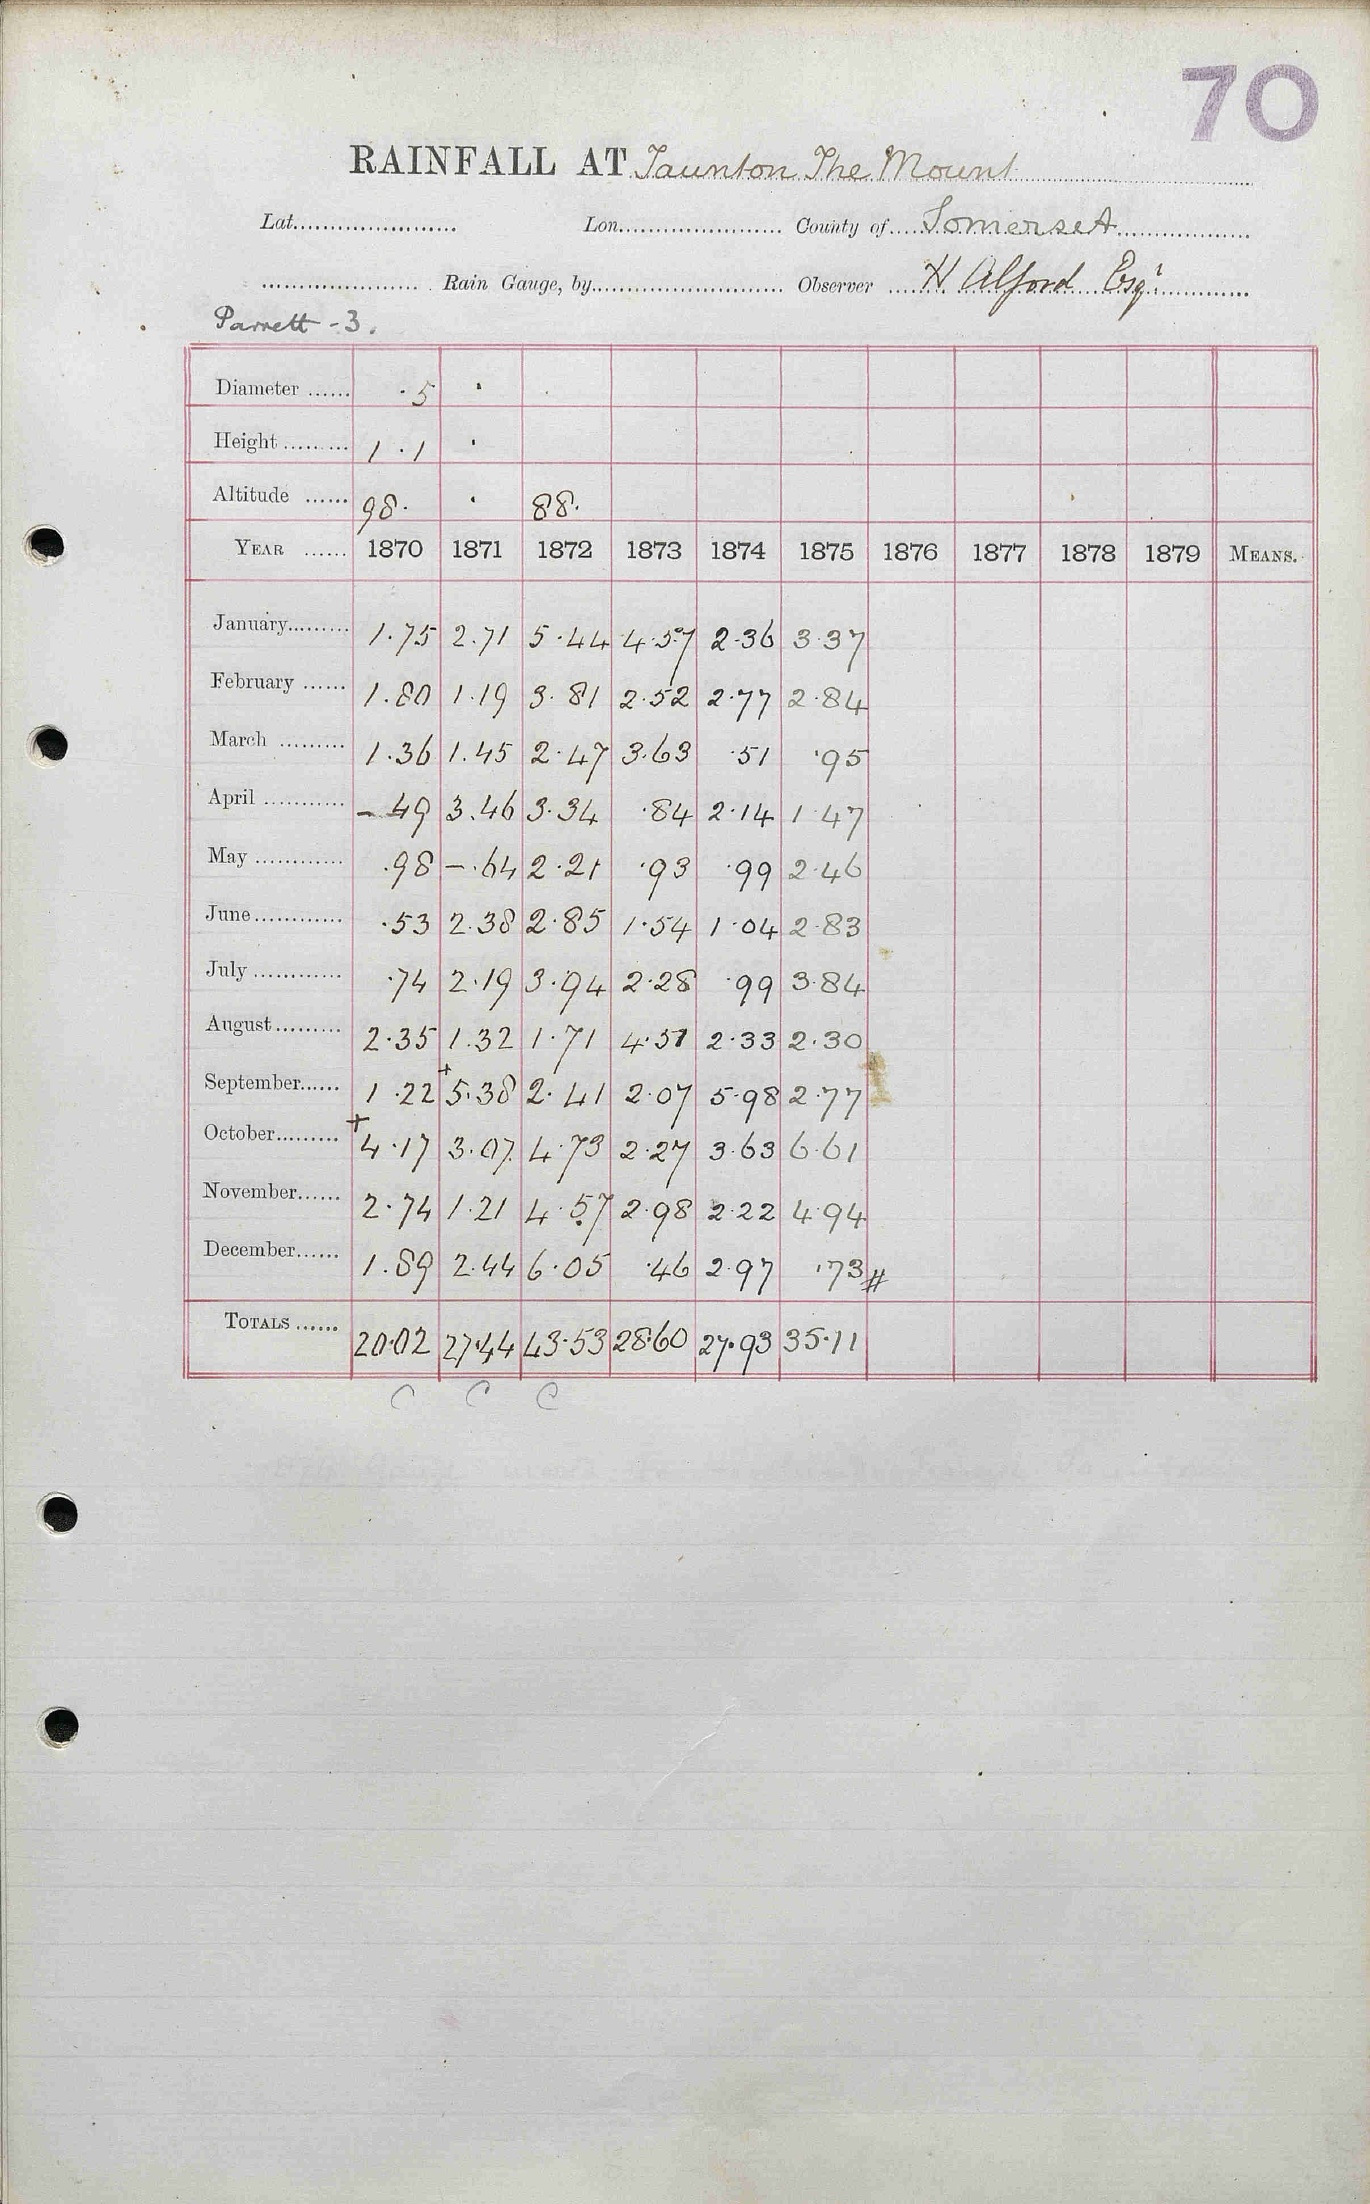 70
RAINFALL AT Taunton The Mount
Lat. Lon. County of Somerset
Rain Gauge, by Observer H Alford Esqr
Parrett - 3.
Diameter ...... .5 .
Height ......... 1 .1 .
Altitude ...... 98. . 88.
YEAR ...... 1870 1871 1872 1873 1874 1875 1876 1877 1878 1879 MEANS.
January......... 1.75 2.71 5.44 4.57 2.36 3.37
February ...... 1.80 1.19 3.81 2.52 2.77 2.84
March ......... 1.36 1.45 2.47 3.63 .51 .95
April ........... -.49 3.46 3.34 .84 2.14 1.47
May ............ .98 -.64 2.21 .93 .99 2.46
June............ .53 2.38 2.85 1.54 1.04 2.83
July ............ .74 2.19 3.94 2.28 .99 3.84
August......... 2.35 1.32 1.71 4.51 2.33 2.30
September...... 1.22 +5.38 2.41 2.07 5.98 2.77
October......... +4.17 3.07 4.73 2.27 3.63 6.61
November...... 2.74 1.21 4.57 2.98 2.22 4.94
December...... 1.89 2.44 6.05 .46 2.97 .73 #
TOTALS ...... 20.02 27.44 43.53 28.60 27.93 35.11
C C C